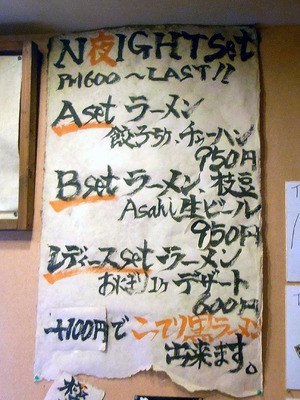 N夜IGHTSet
PM600〜LAST!!
Aset ラーメン
餃子5ヶ、チャーハン
950円
Bset ラーメン、枝豆
Asahi生ビール
950円
レディースset・ラーメン
おにぎり1ヶ デザート
600円
+100円で こってり黒ラーメン
出来ます。